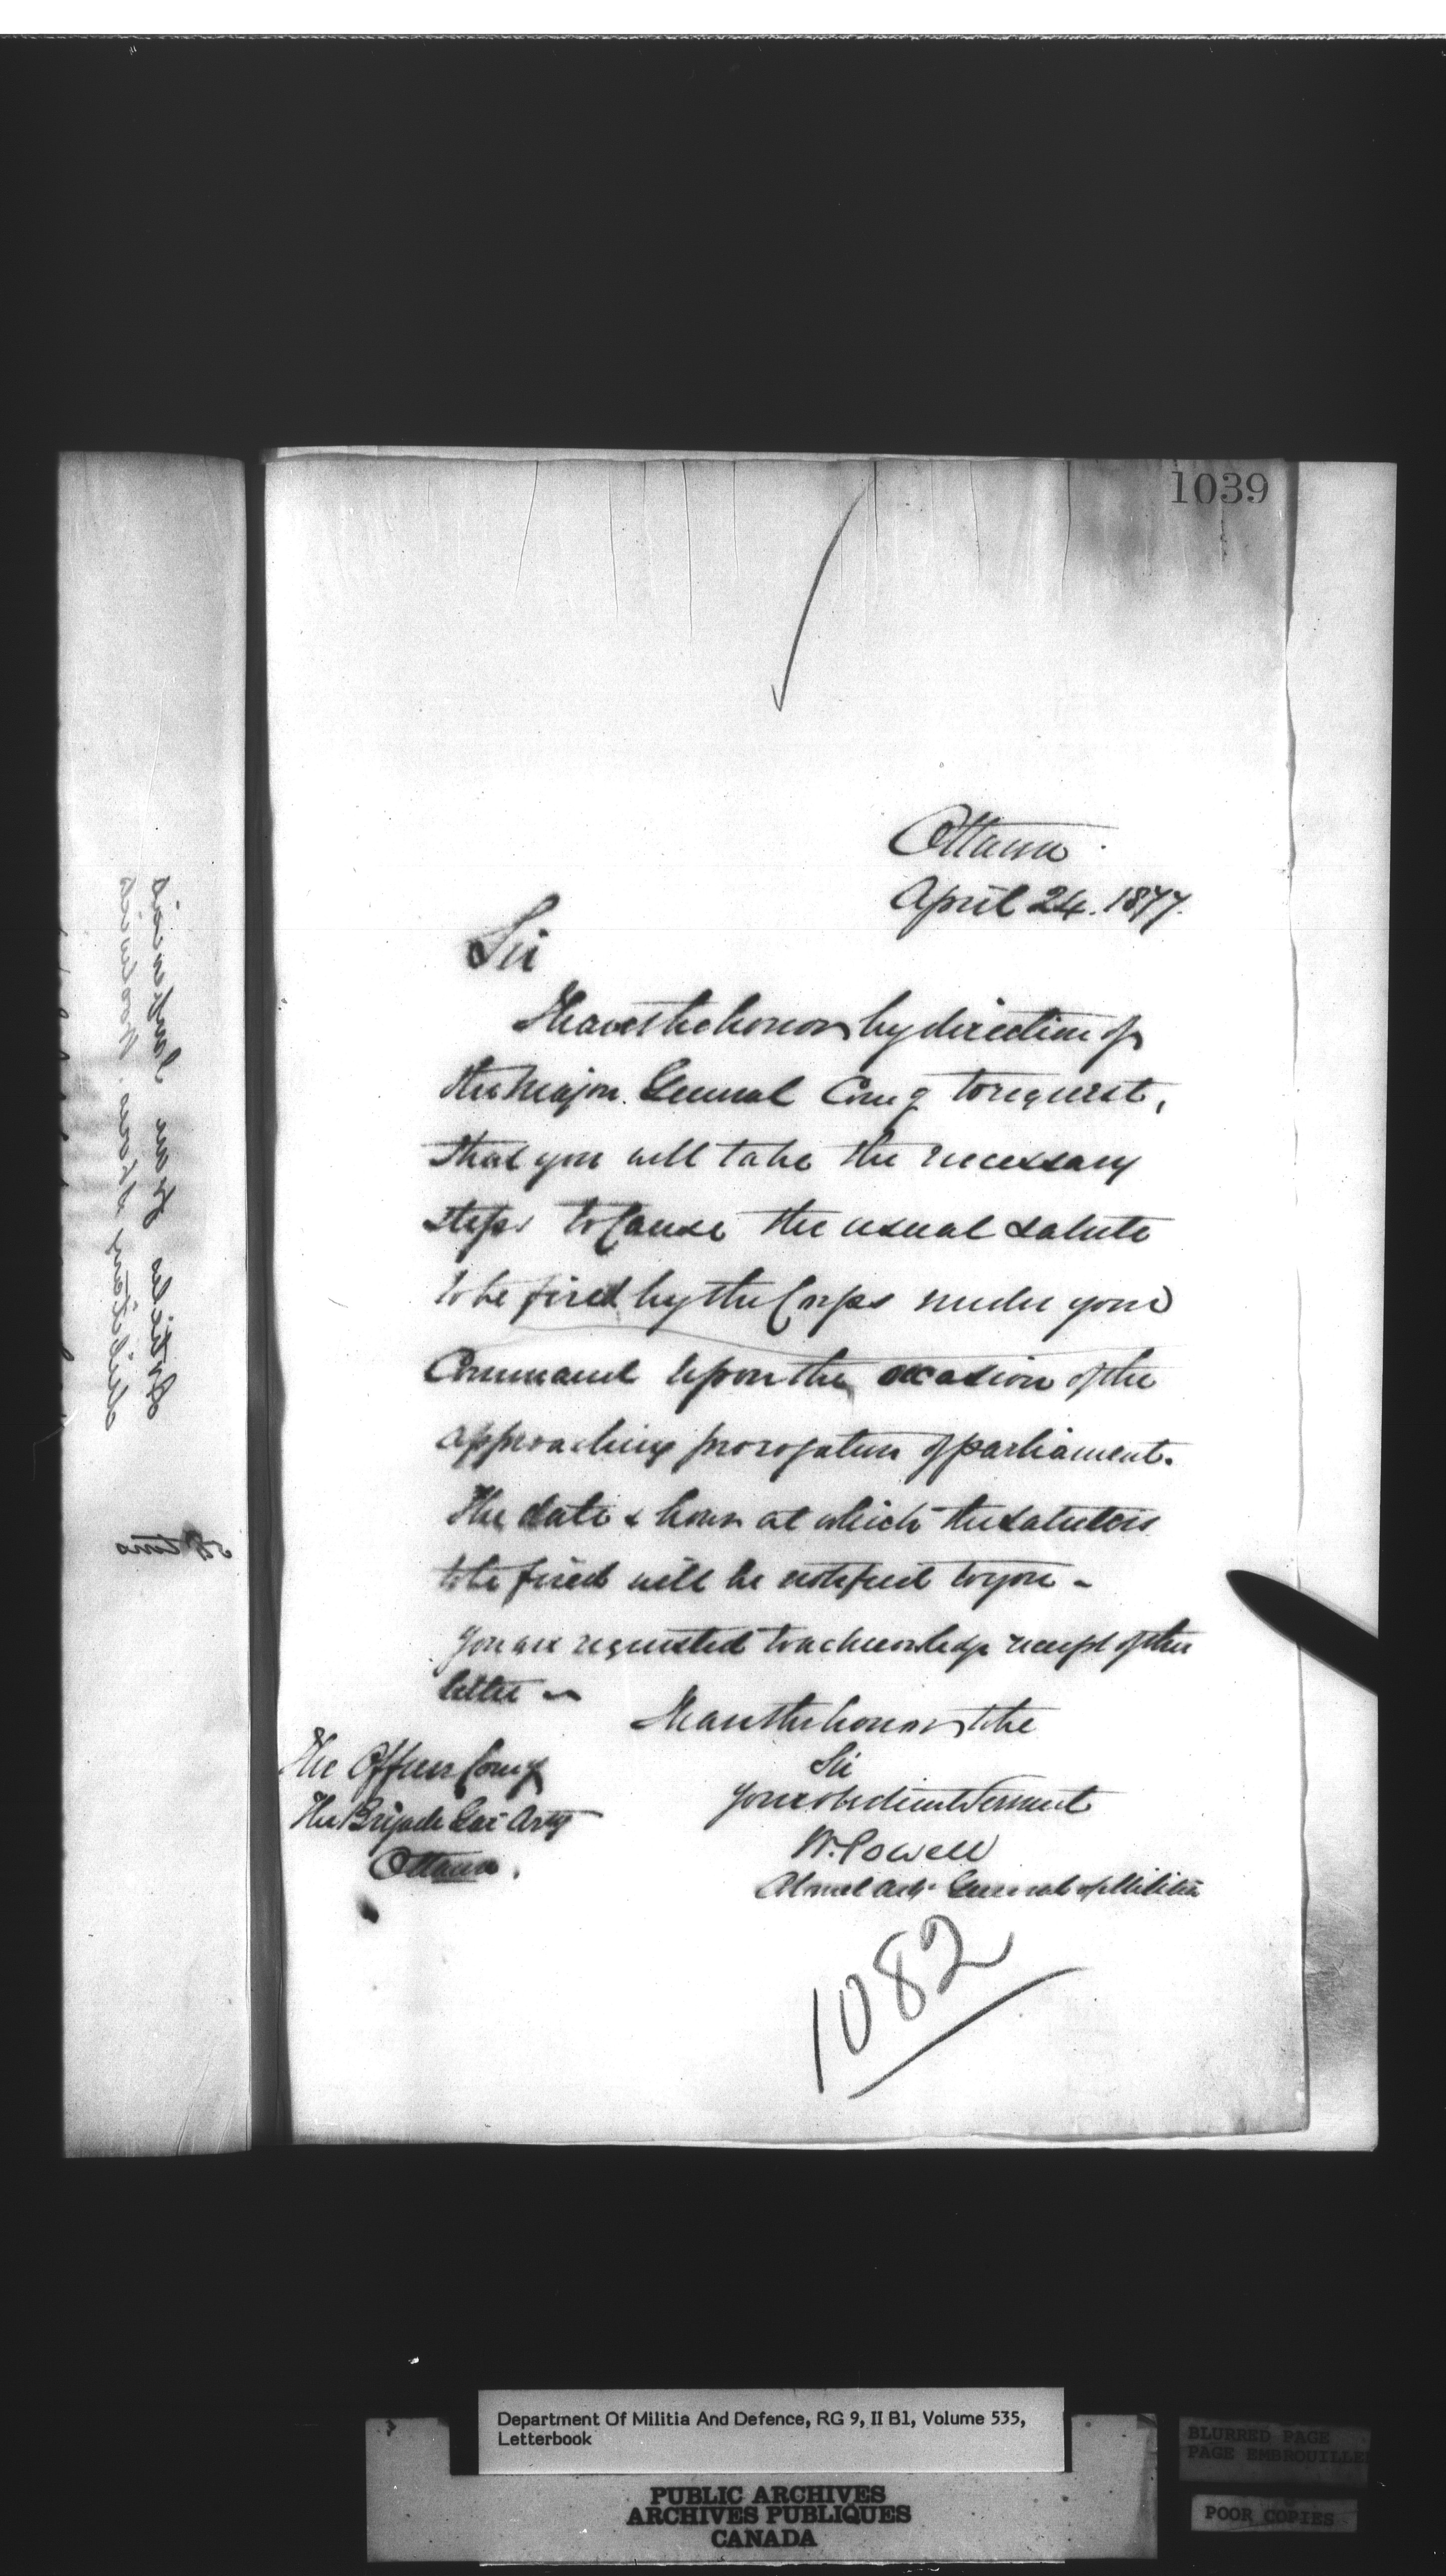 1039
Ottawa
April 24. 1877.
Sir
I have the honor by direction of
the Major General Comg to request,
that you will take the necessary
steps to Cause the usual salute
to be fired by the Corps under your
Command upon the occasion of the
approaching prorogation of parliament.
The date & hour at which the salute is
to be fired will be notified to you -
You are requested to acknowledge receipt of this
letter -
I have the honor to be
Sir
Your obedient Servant
W. Powell
Colonel Adjt General of Militia
The Officer Comg
The Brigade Gar Arty
Ottawa.
1082
Articles from
Military Stores. Woolwich
Department Of Militia And Defence, RG 9, II B1, Volume 535,
Letterbook
PUBLIC ARCHIVES
ARCHIVES PUBLIQUES
CANADA
BLURRED PAGE
PAGE EMBROUILLEE
POOR COPIES